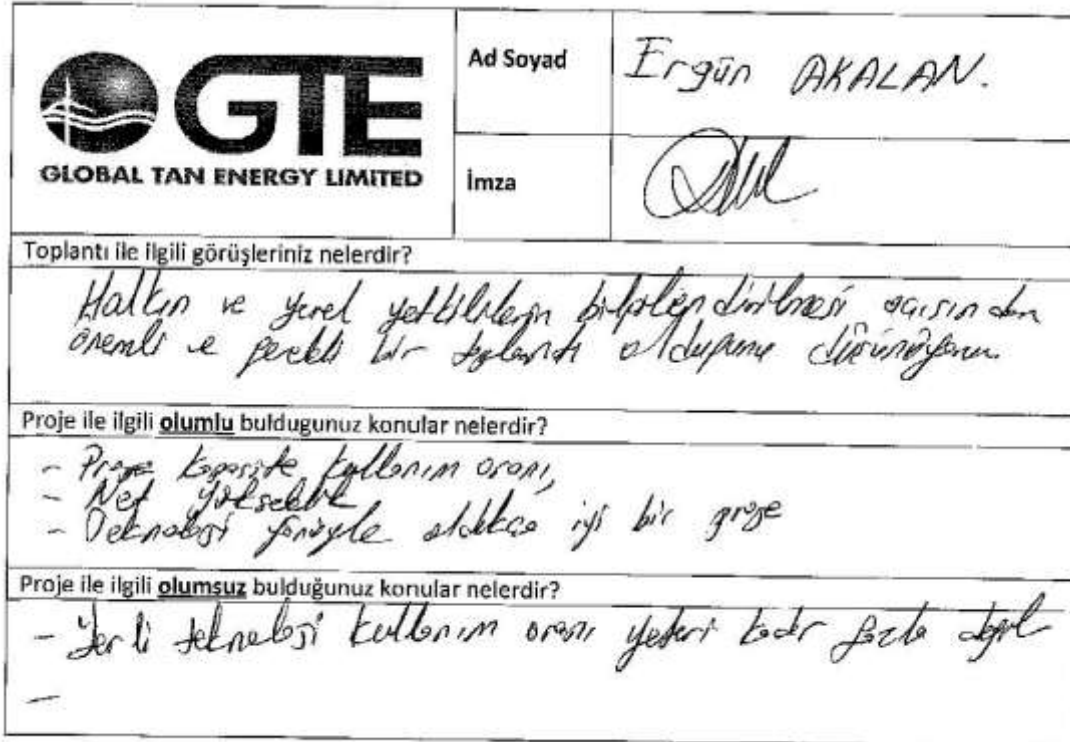 GTE
GLOBAL TAN ENERGY LIMITED
Ad Soyad
Ergün AKALAN.
İmza
Toplantı ile ilgili görüşleriniz nelerdir?
Halkın ve yerel yetkililerin bilgilendirilmesi açısından
önemli ve gerekli bir toplantı olduğunu düşünüyorum.
Proje ile ilgili olumlu buldugunuz konular nelerdir?
- Proje kapasite kullanım oranı,
- Net yükseklik
- Teknoloji yönüyle oldukça iyi bir proje
Proje ile ilgili olumsuz bulduğunuz konular nelerdir?
- Yerli teknoloji kullanım oranı yeteri kadar fazla değil
-